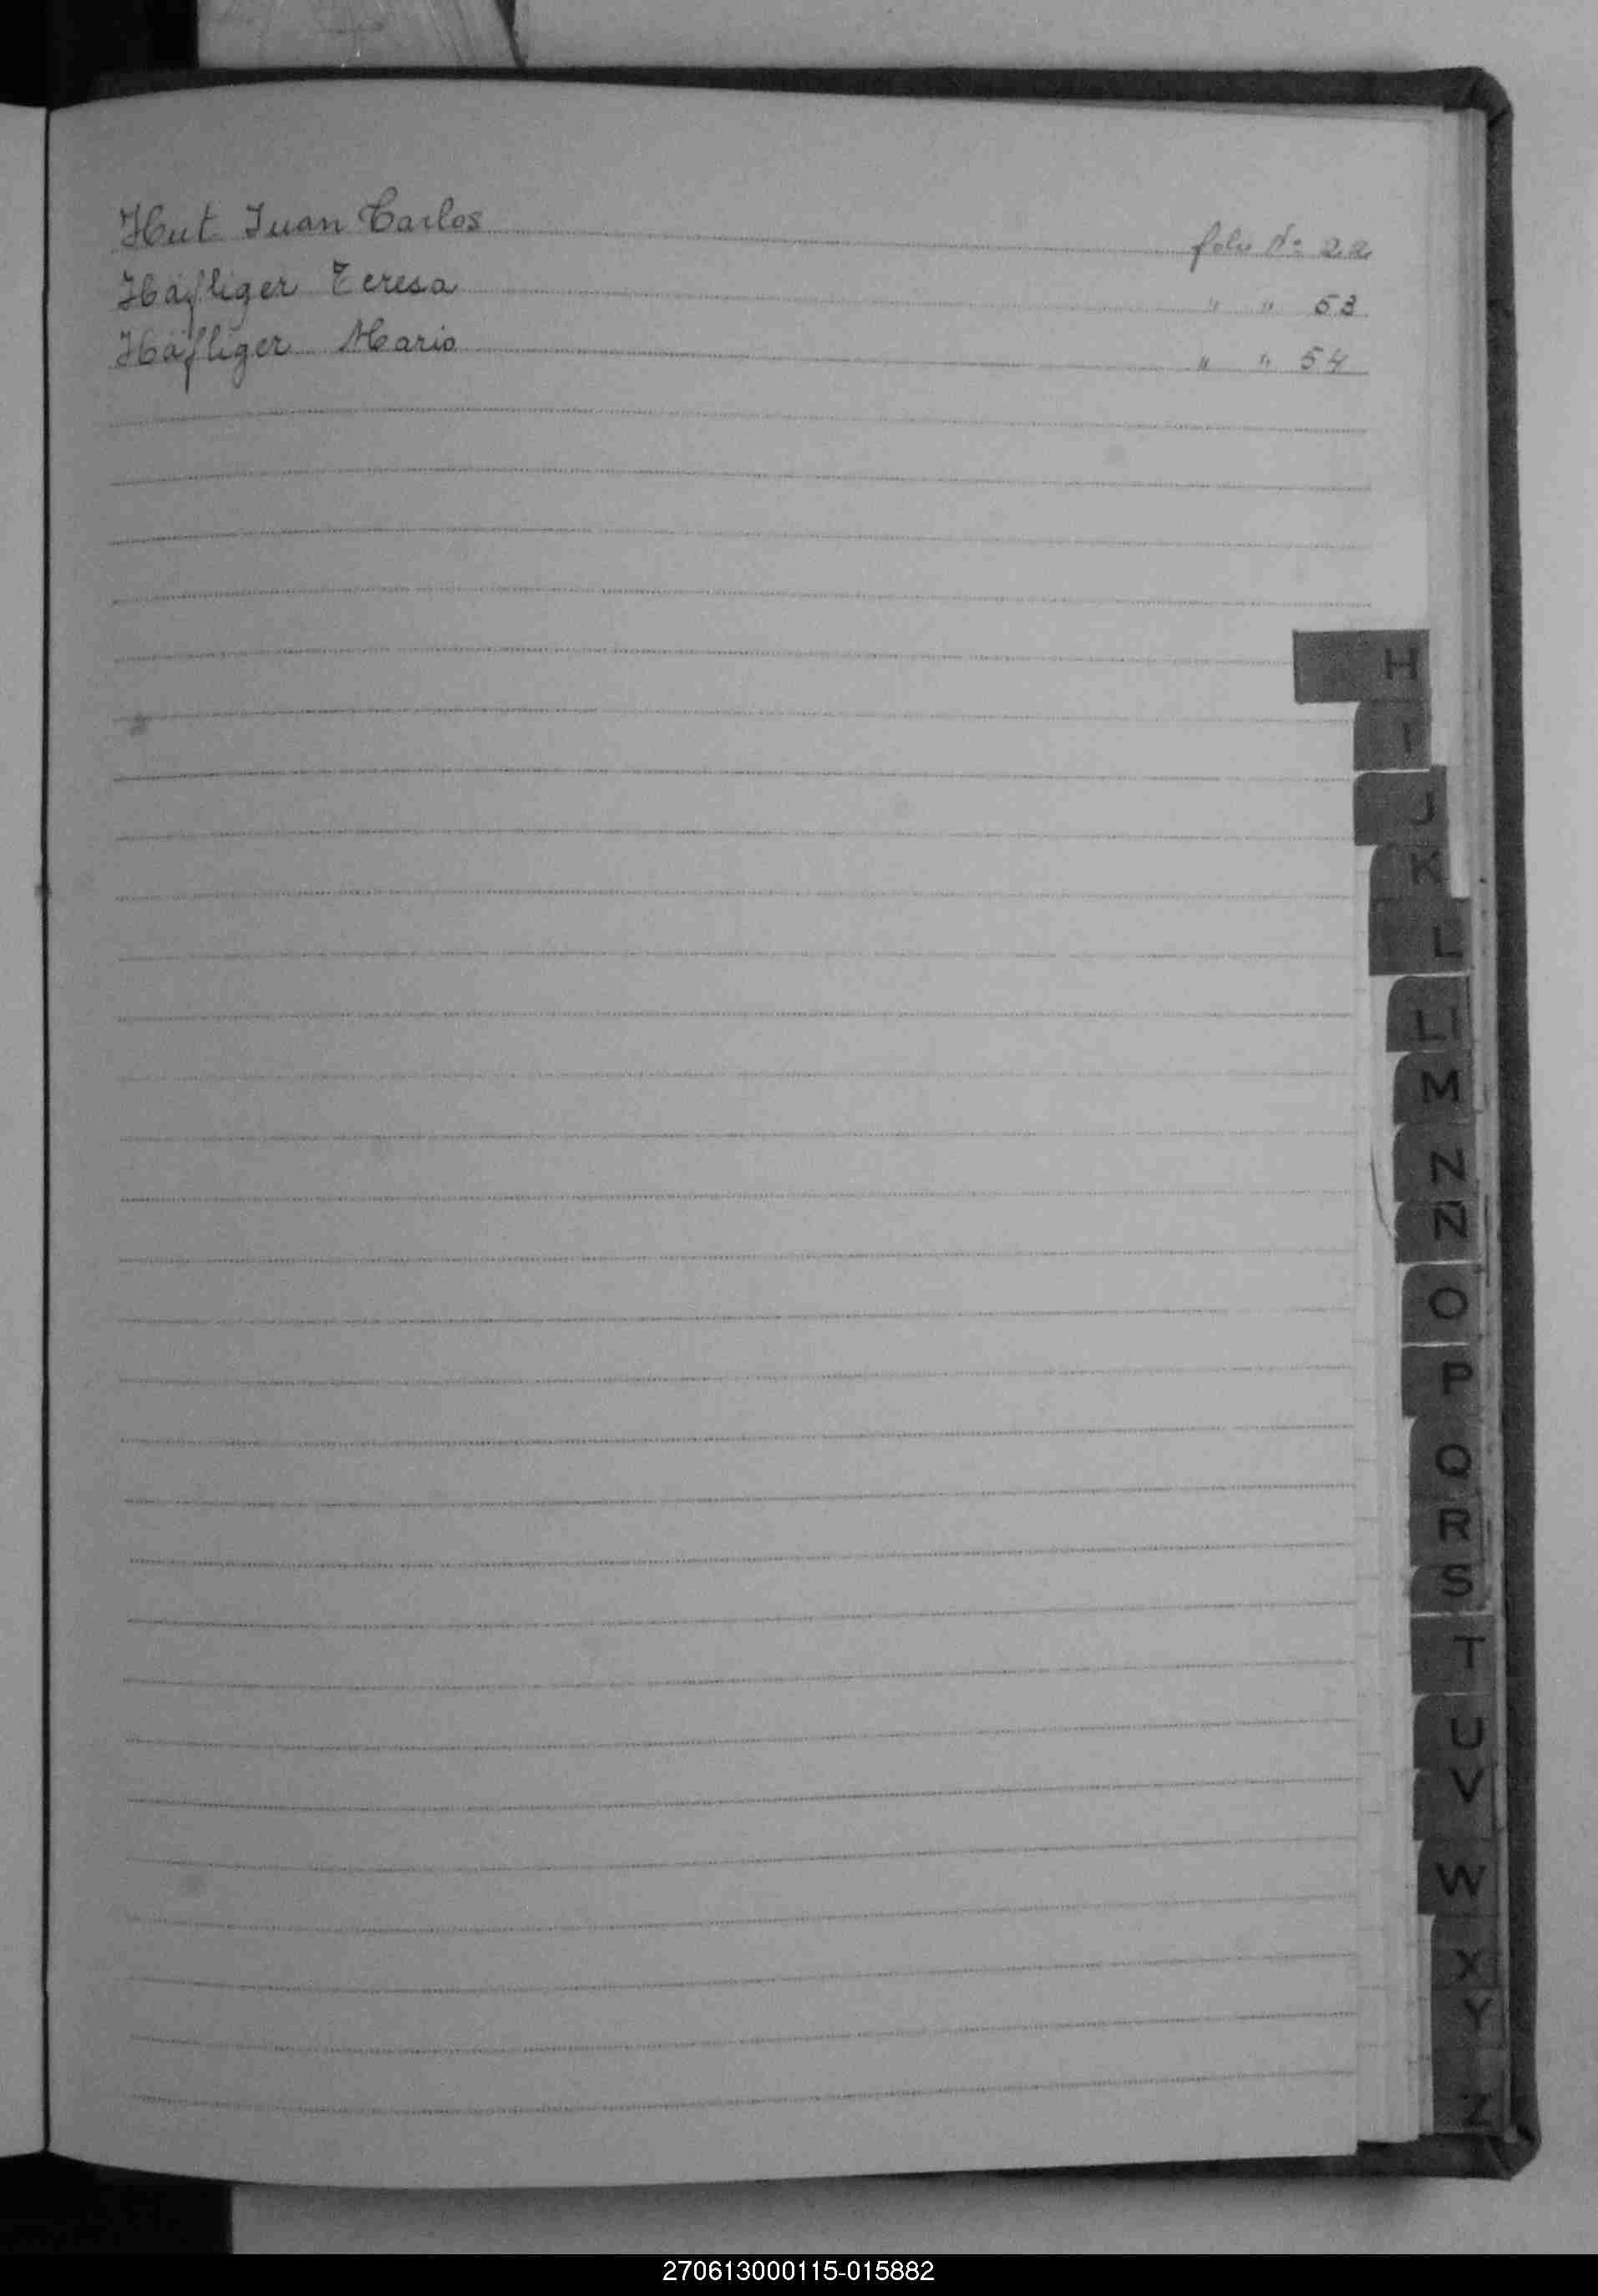 Hut Juan Carlos folio Nº 22
Häfliger Teresa " " 53
Häfliger Mario " " 54
H
I
J
K
L
Ll
M
N
Ñ
O
P
Q
R
S
T
U
V
W
X
Y
Z
270613000115-015882